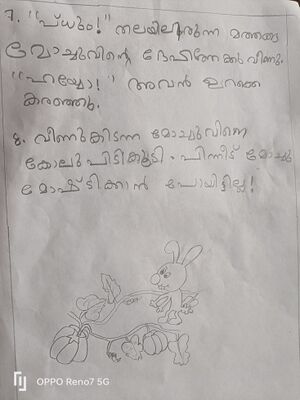 7. "പ്ധും!" തലയിലിരുന്ന മത്തങ്ങ
മോച്ചുവിന്റെ ദേഹത്തേക്കു വീണു.
"ഹയ്യോ!" അവൻ ഉറക്കെ
കരഞ്ഞു.
8. വീണുകിടന്ന മോച്ചുവിനെ
കോലു പിടികൂടി. പിന്നീട് മോച്ചു
മോഷ്ടിക്കാൻ പോയിട്ടില്ല!
OPPO Reno7 5G